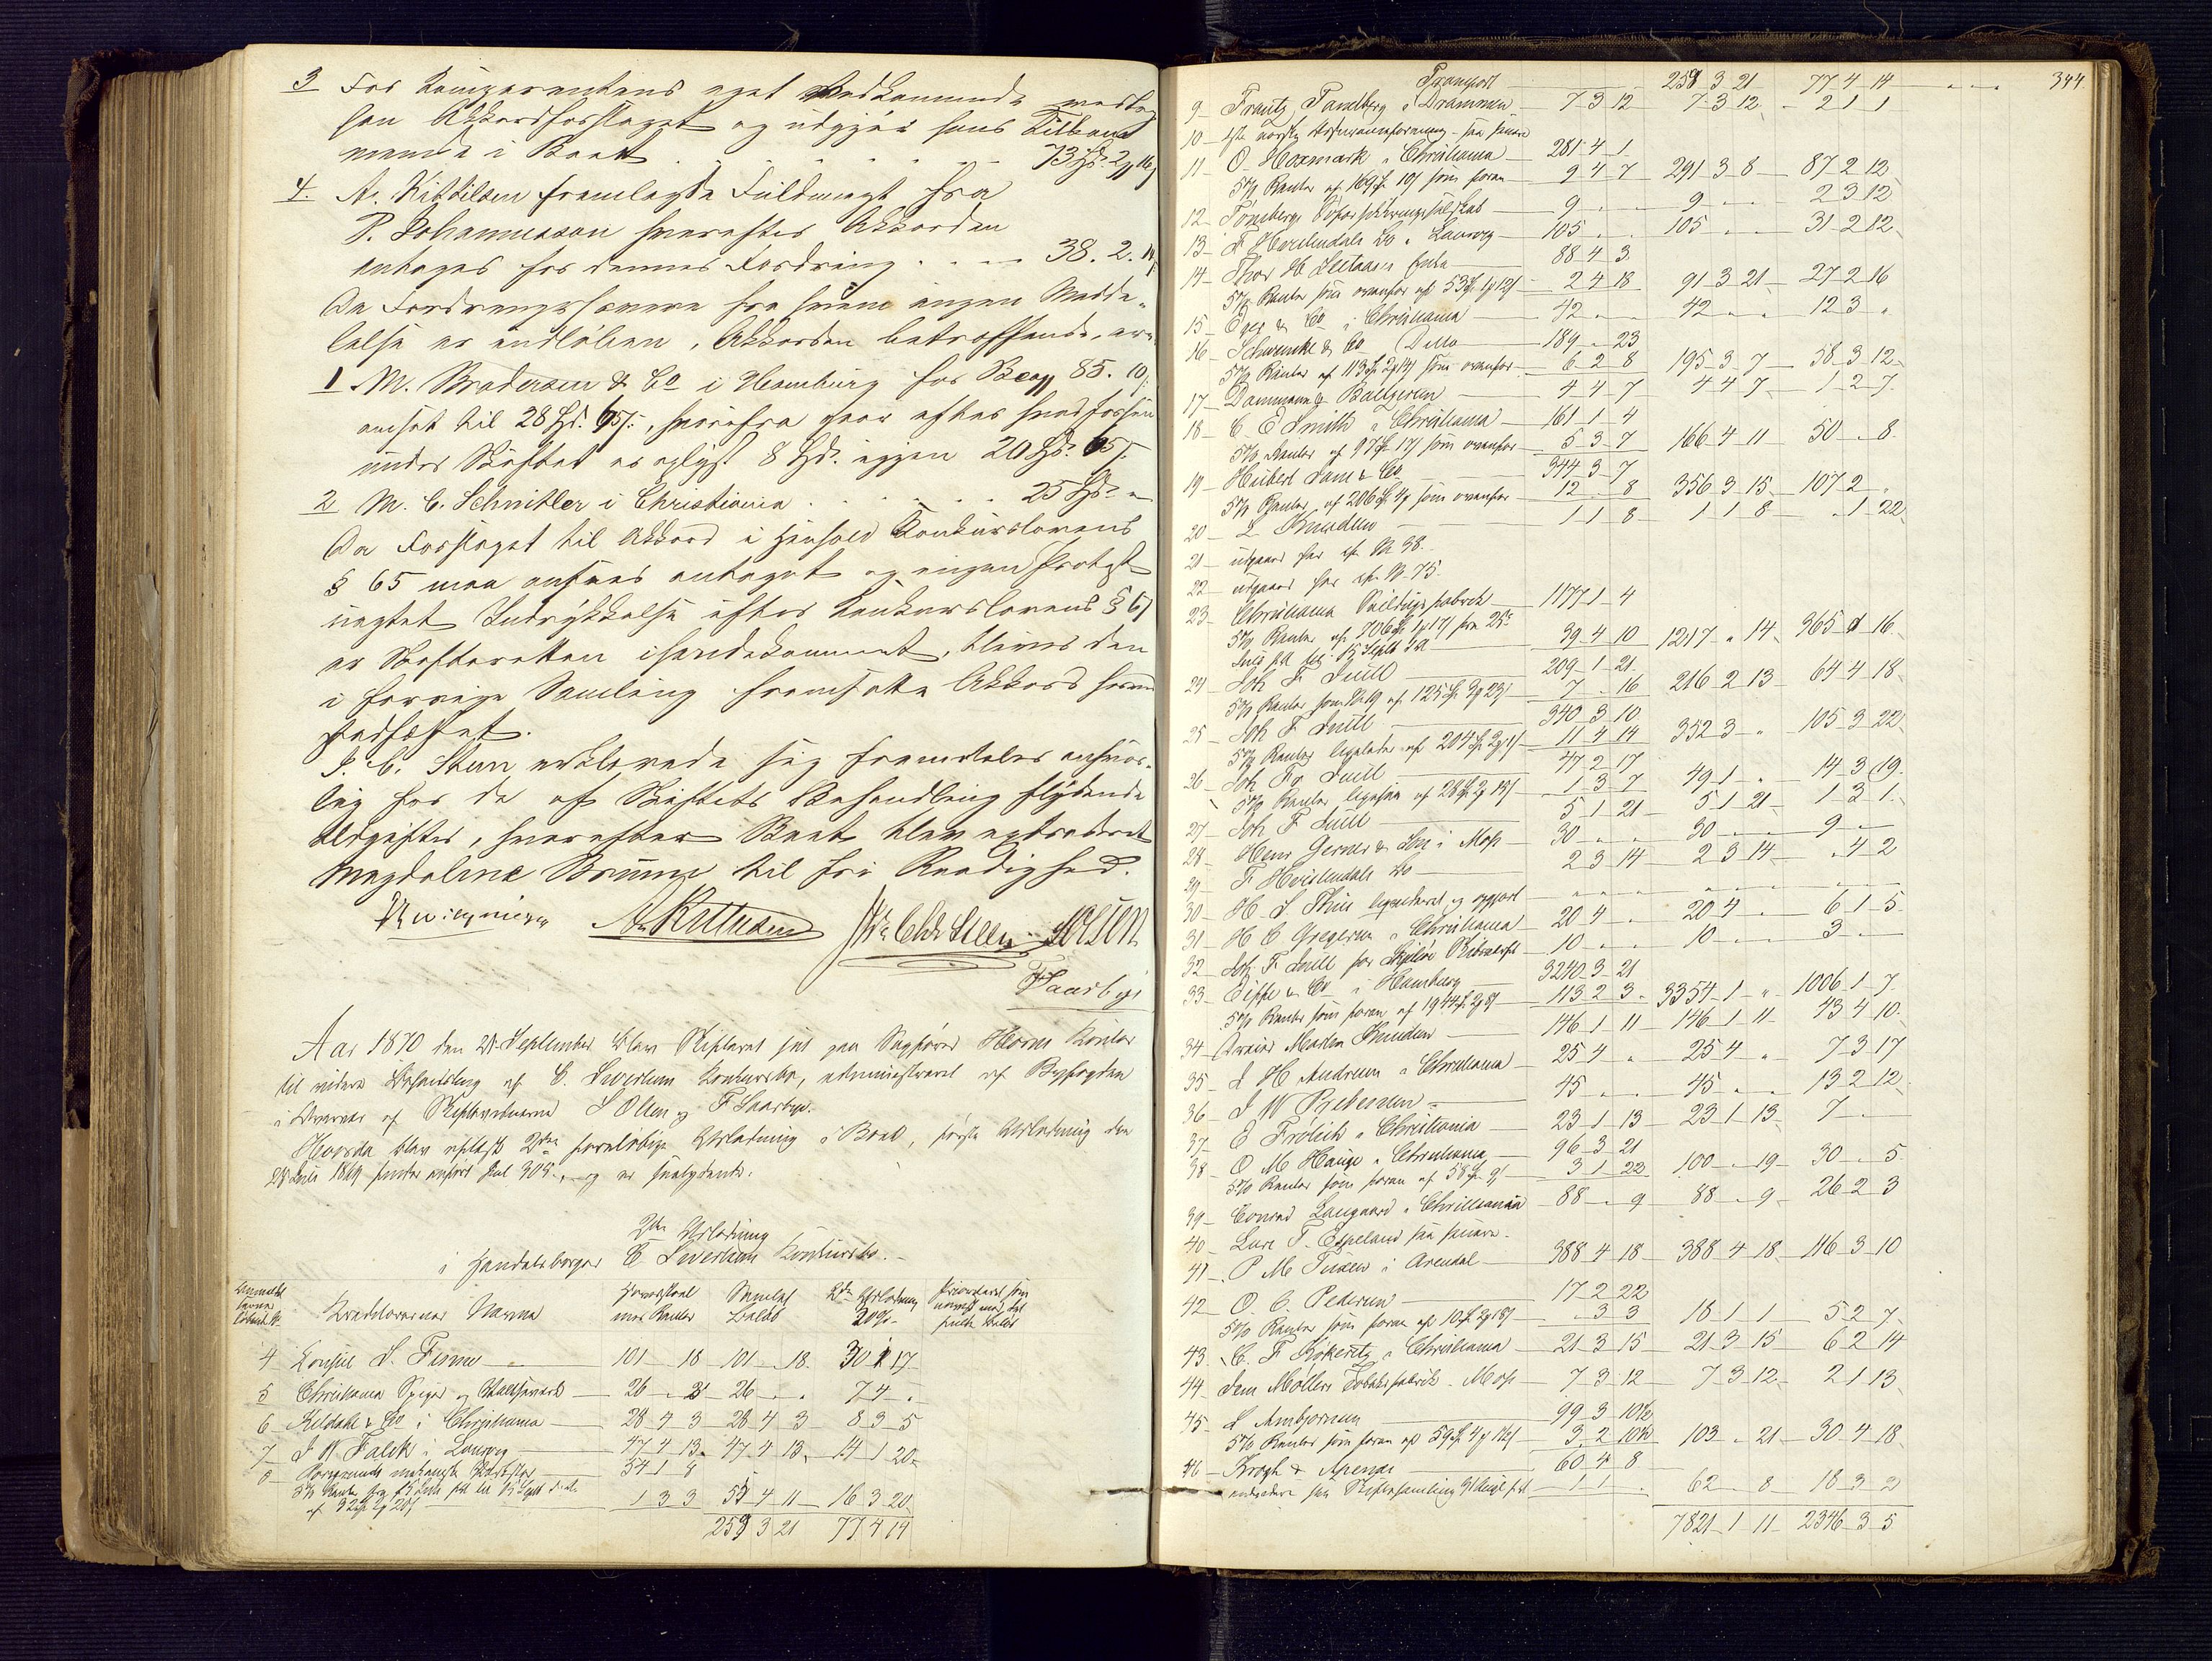 3 For Komparentens eget Vedkommende vedtog
han Akkordforslaget og udgjør hans Tilkom
mende i Boet . . . . . . 73 Spd. 2
4. A. Kittilsen fremlagde Fuldmagt fra
P. Johannesson hvorefter Akkorden
antages for dennes Fordring . . . . 38. 2.
Da Fordringshavere fra hvem ingen Medde-
lelse er indløben, Akkorden betræffende, ere
1 M. Brodersen & Co i Hamburg for 85. 10
ansat til 28 Spd. , hvorifra gaar efter hvad
under Skiftet er oplyst 8 Spd. igjen 20 Spd.
2 M. C. Schnitler i Christiania . . . . . . 25 Spd. "
Da Forslaget til Akkord i Henhold Konkurslovens
§ 65 maa ansees antaget og ingen Protest
uagtet Indrykkelse efter Konkurslovens § 67
er Skifteretten ihændekommet, blives den
i forrige Samling fremsatte Akkord herved
stadfæstet.
J. C. Steen erklærede sig fremdeles ansvar-
lig for de af Skiftets Behandling flydende
Udgifter, hvorefter Boet blev extraderet
Magdalene Bruun til fri Raadighed.
A Kittilsen Chr Steen S Olsen
F Saarbye
Aar 1870 den 21 September blev Skifteret sat paa Sagfører Horns Kontor
til videre Behandling af C. Sivertsen Konkursbo, administreret af Byfogden
i Overvær af Skiftevidnerne S Olsen og F Saarbye.
Hvorda blev oplæst 2den foreløbige Udlodning i Boet, første Udlodning den
28 Juli 1869 findes anført Fol 305, og er saalydende:
2den Udlodning
i Handelsborger C Sivertsen Konkursbo.
Kreditorernes Navne Hovedstol med Renter Samlet Beløb 2den Udlodning 30%
4 Konsul S. Finne 101 " 18 101 " 18 30 1 17
5 Christiania Spiger og Valseværk 26 " " 26 " " 7 4 "
6 Keldahl & Co i Christiania 28 4 3 28 4 3 8 3 5
7 J N Falck i Laurvig 47 4 13 47 4 13 14 1 20
8 mekaniske Værksted 54 1 8
5% Rente fra 15 Juli til 15 Septb
af 32 Spd 2 20 1 3 3 55 4 11 16 3 20
259 3 21 77 4 14
344
Transport 259 3 21 77 4 14
9 Frantz Tandberg i Drammen 7 3 12 7 3 12 2 1 1
10 norske Assuranceforening
11 O. Hoxmark i Christiania 281 4 1
5% Renter af 169 Spd 19 som foran 9 4 7 291 3 8 87 2 12
12 Tønsbergs Søforsikringsselskab 9 " " 9 " " 2 3 12
13 F Hvistendals Co i Laurvig 105 " " 105 " " 31 2 12
14 Thor H Seeland Enke 88 4 3
5% Renter som ovenfor af 53 Spd 1 12 2 4 18 91 3 21 27 2 16
15 Eger & Co i Christiania 42 " " 42 " " 12 3 "
16 Schwencke & Co Ditto 189 " 23
5% Renter af 113 Spd 2 14 som ovenfor 6 2 8 195 3 7 58 3 12
17 Dammann & Baltzersen 4 4 7 4 4 7 1 2 7
18 C E Smith i Christiania 161 1 4
5% Renter af 97 Spd 17 som ovenfor 5 3 7 166 4 11 50 " 8
19 Hubert Sam & Co 344 3 7
5% Renter af 206 Spd 4 som ovenfor 12 " 8 356 3 15 107 2 "
20 L Knudsen 1 1 8 1 1 8 " 1 22
21 udgaaer her cfr No 38.
22 udgaaer her cfr No 75.
23 Christiania Seildugsfabrik 1177 1 4
5% Renter af 706 Spd 1 17 fra 25de
Juli f.A. til 15 Septb d.A. 39 4 10 1217 " 14 365 " 16
24 Joh F Juell 209 1 21
5% Renter som No 19 af 125 Spd 3 23 7 " 16 216 2 13 64 4 18
25 Joh F Juell 340 3 10
5% Renter ligeledes af 204 Spd 2 11 4 14 352 3 " 105 3 22
26 Joh F Juell 47 2 17
5% Renter ligesaa af 28 Spd 2 13 1 3 7 49 1 " 14 3 19
27 Joh F Juell 5 1 21 5 1 21 1 3 1
28 Hans Gerner & Søn i Moss 30 " " 30 " " 9 "
29 F Hvistendals Co 2 3 14 2 3 14 " 4 2
30 H S Thiis
31 H C Gregersen i Christiania 20 4 " 20 4 " 6 1 5
32 Joh F Juell for 10 " " 10 " " 3 "
33 Eiffe & Co i Hamburg 3240 3 21
5% Renter som foran af 1944 Spd 2 8 113 2 3 3354 1 " 1006 1 7
34 Morten Knudsen 146 1 11 146 1 11 43 4 10
35 L H Andresen i Christiania 25 4 " 25 4 " 7 3 17
36 J W 45 " " 45 " " 13 2 12
37 E Frölich i Christiania 23 1 13 23 1 13 7 "
38 O M Hauge i Christiania 96 3 21
5% Renter som foran af 58 Spd 9 3 1 22 100 " 19 30 " 5
39 Conrad Langaard i Christiania 88 " 9 88 " 9 26 2 3
40 Lars T. Espeland
41 P M Tuxen i Arendal 388 4 18 388 4 18 116 3 10
42 O. C. Pedersen 17 2 22
5% Renter som foran af 10 Spd 2 18 " 3 3 18 1 1 5 2 7
43 C. F Kökeritz i Christiania 21 3 15 21 3 15 6 2 14
44 Sem Møllers Tobaksfabrik Moss 7 3 12 7 3 12 2 1 13
45 L Ambjørnsen 99 3 10½
5% Renter som foran af 59 Spd 4 3 2 10½ 103 " 21 30 4 18
46 Krogh & Arentz 60 4 8
1 1 " 62 " 8 18 3 2
7821 1 11 2346 3 5